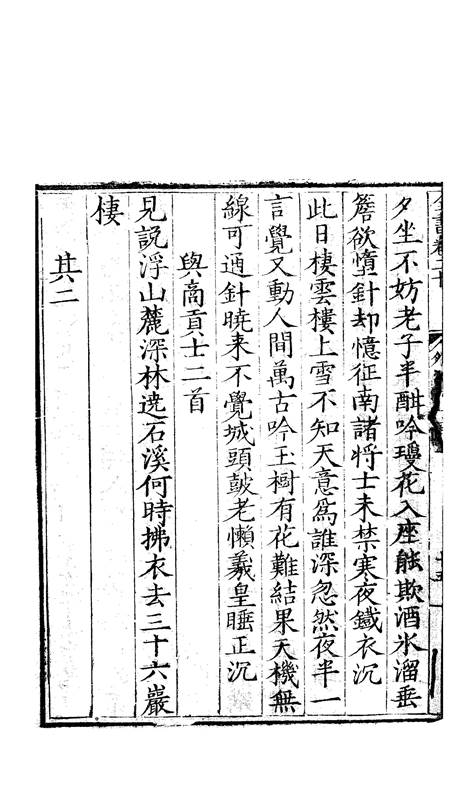 夕坐不妨老子半酣吟瓊花入座能欺酒氷溜垂
簷欲墮針却憶征南諸將士未禁寒夜鐵衣沉
此日棲雲樓上雪不知天意爲誰深忽然夜半一
言覺又動人間萬古吟玉樹有花難結果天機無
線可通針曉来不覺城頭皷老懶羲皇睡正沉
與高貢士二首
見説浮山麓深林遶石溪何時拂衣去三十六巖
棲
其二